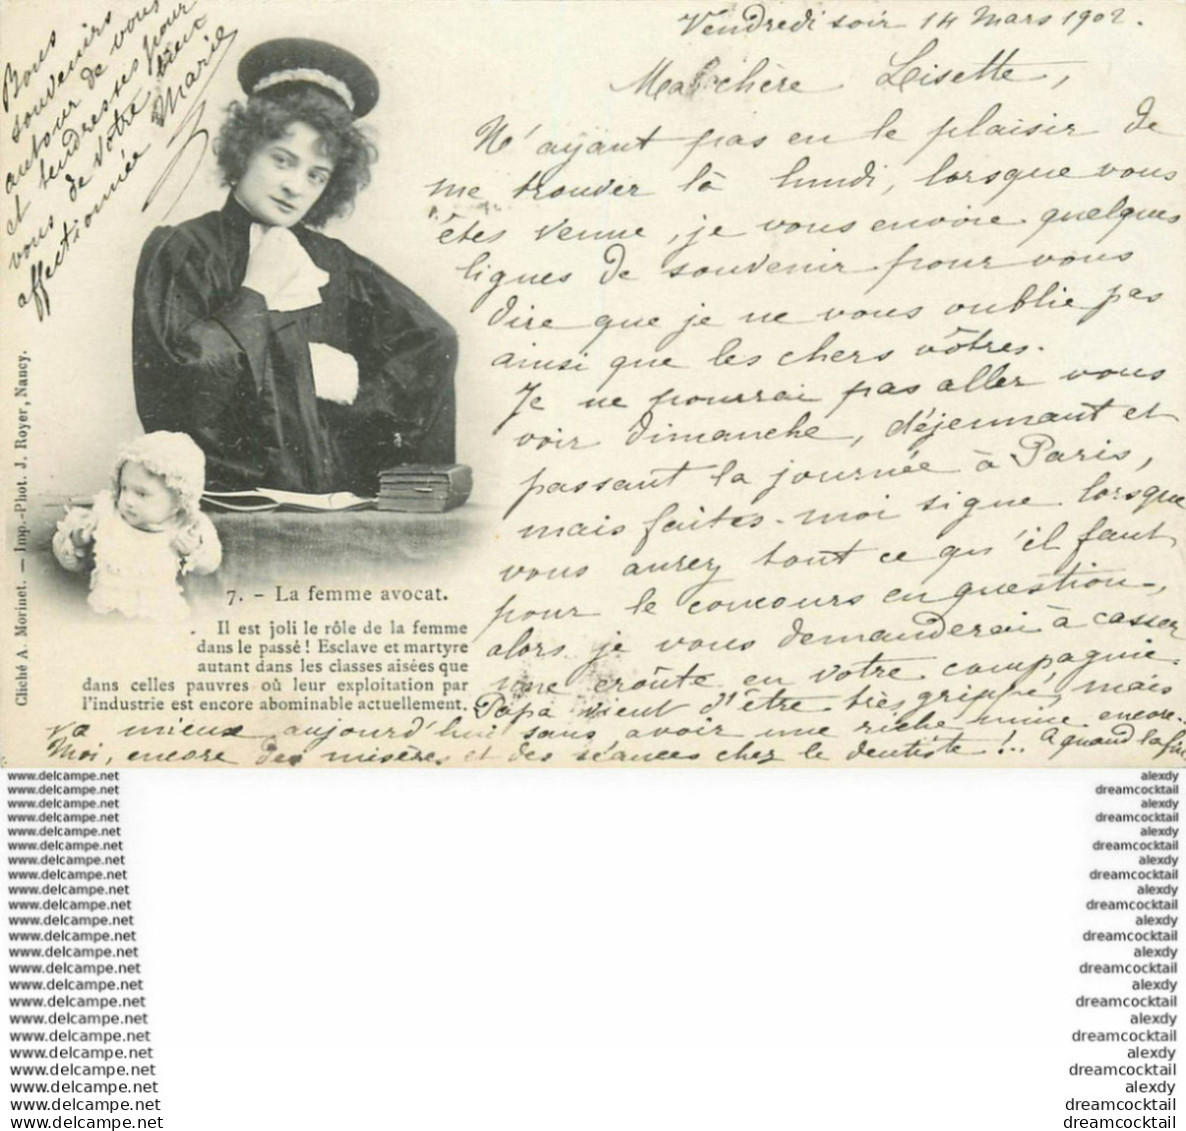 Vendredi soir 14 Mars 1902.
Ma chère Lisette,
N'ayant pas eu le plaisir de
me trouver là lundi, lorsque vous
êtes venue, je vous envoie quelques
lignes de souvenir pour vous
dire que je ne vous oublie pas
ainsi que les chers vôtres.
Je ne pourrai pas aller vous
voir Dimanche, déjeunant et
passant la journée à Paris,
mais faites-moi signe lorsque
vous aurez tout ce qu'il faut
pour le concours en question,
alors je vous demanderai à casser
une croûte en votre compagnie.
Papa vient d'être très grippé, mais
va mieux aujourd'hui sans avoir une riche mine encore.
Moi, encore des misères et des séances chez le dentiste!.. A quand la fin
Bons
souvenirs
autour de vous
et tendresses pour
vous de votre bien
affectionnée Marie
Cliché A. Morinet. — Imp.-Phot. J. Royer, Nancy.
7. - La femme avocat.
Il est joli le rôle de la femme
dans le passé! Esclave et martyre
autant dans les classes aisées que
dans celles pauvres où leur exploitation par
l'industrie est encore abominable actuellement.
www.delcampe.net alexdy
www.delcampe.net dreamcocktail
www.delcampe.net alexdy
www.delcampe.net dreamcocktail
www.delcampe.net alexdy
www.delcampe.net dreamcocktail
www.delcampe.net alexdy
www.delcampe.net dreamcocktail
www.delcampe.net alexdy
www.delcampe.net dreamcocktail
www.delcampe.net alexdy
www.delcampe.net dreamcocktail
www.delcampe.net alexdy
www.delcampe.net dreamcocktail
www.delcampe.net alexdy
www.delcampe.net dreamcocktail
www.delcampe.net alexdy
www.delcampe.net dreamcocktail
www.delcampe.net alexdy
www.delcampe.net dreamcocktail
www.delcampe.net alexdy
www.delcampe.net dreamcocktail
www.delcampe.net dreamcocktail